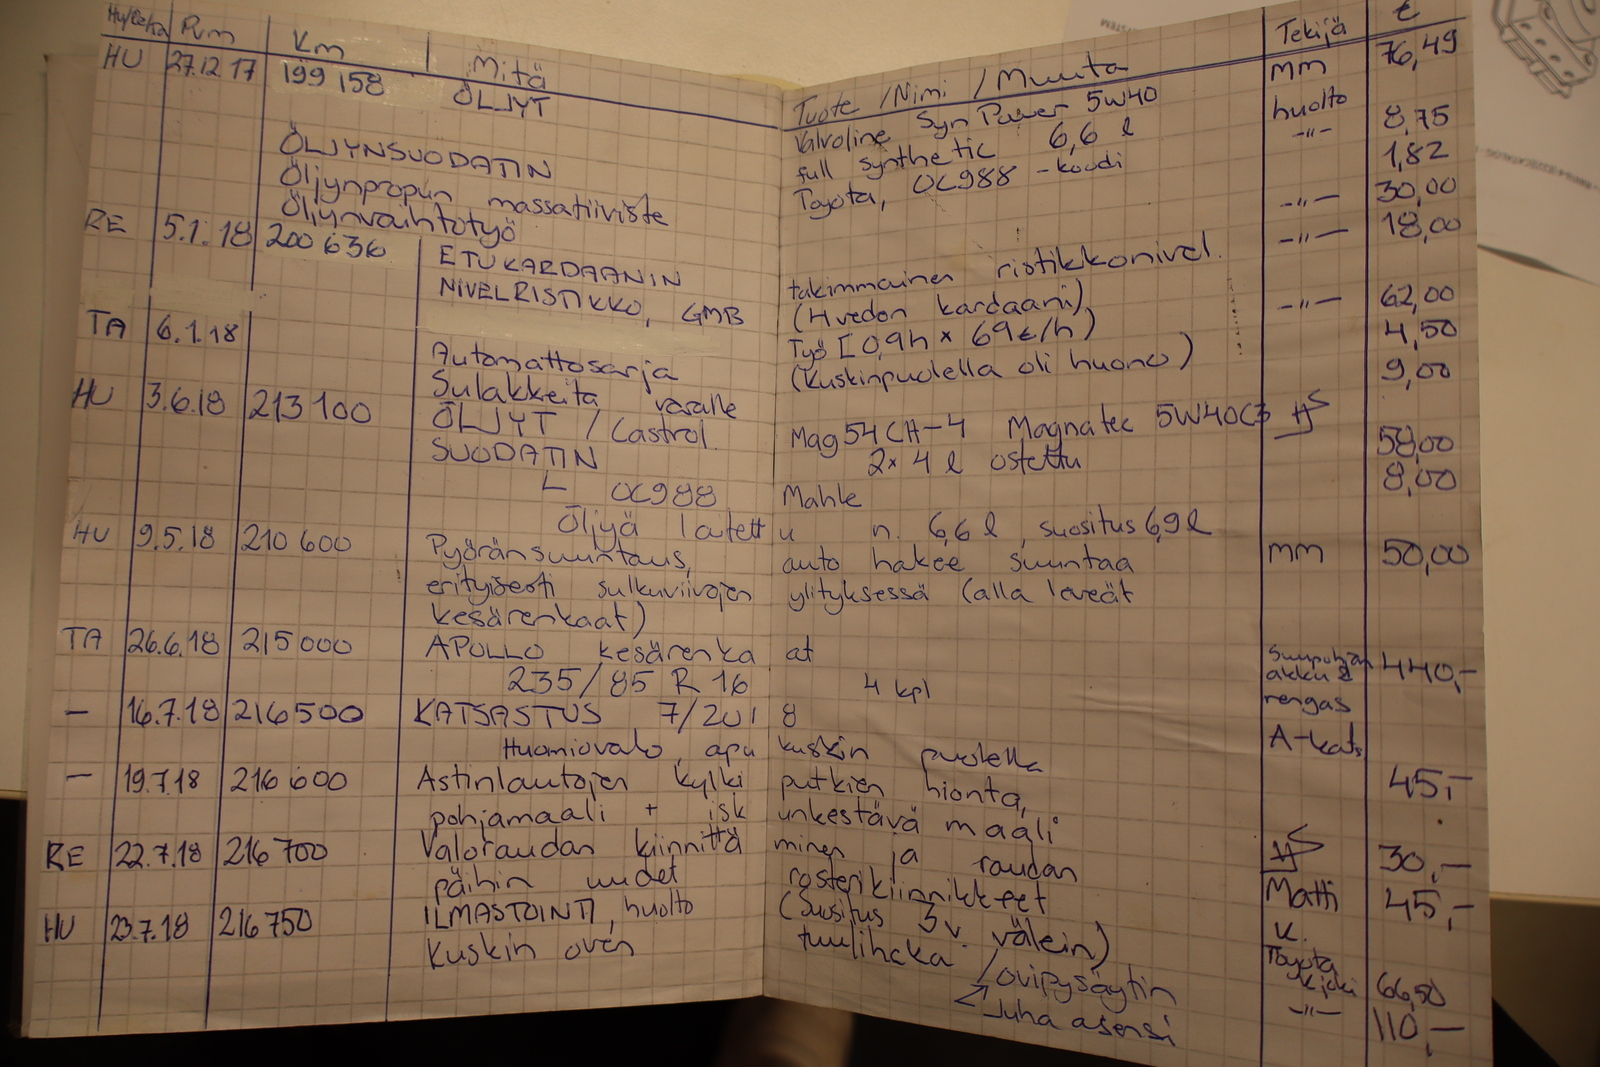 Pvm Km Mitä Tuote / Nimi / Muuta Tekijä €
HU 27.12 17 199 158 ÖLJYT Valvoline SynPower 5W40 MM 76,49
full synthetic 6,6 l huolto
ÖLJYNSUODATIN Toyota, OC988 -koodi -"- 8,75
Öljynpropun massatiiviste 1,82
Öljynvaihtotyö -"- 30,00
RE 5.1.18 200 636 ETUKARDAANIN takimmainen ristikkonivel. -"- 18,00
NIVELRISTIKKO, GMB (4vedon kardaani)
Työ [0,9h × 69€/h) -"- 62,00
(Kuskinpuolella oli huono) 4,50
TA 6.1.18 Automattosarja 9,00
Sulakkeita varalle
HU 3.6.18 213 100 ÖLJYT / Castrol Mag54CH-4 Magnatec 5W40C3 58,00
SUODATIN 2x 4 l ostettu 8,00
OC988 Mahle
Öljyä laitettu n. 6,6 l, suositus 6,9 l
HU 9.5.18 210 600 Pyöränsuuntaus, auto hakee suuntaa MM 50,00
erityisesti sulkuviivojen ylityksessä (alla leveät
kesärenkaat)
TA 26.6.18 215 000 APOLLO kesärenkaat akku & 440,-
235/85 R 16 4 kpl rengas
— 16.7.18 216500 KATSASTUS 7/2018 A-kats.
Huomiovalo, apukuskin puolella 45,-
— 19.7.18 216 600 Astinlautojen kylkiputkien hionta,
pohjamaali + iskunkestävä maali
RE 22.7.18 216 700 Valoraudan kiinnittäminen ja raudan 30,—
päihin uudet rosterikiinnikkeet Matti 45,-
HU 23.7.18 216 750 ILMASTOINTI, huolto (Suositus 3v. välein) K.
Kuskin oven tuulihaka / ovipysäytin Toyota 66,50
Juha asensi -"- 110,—